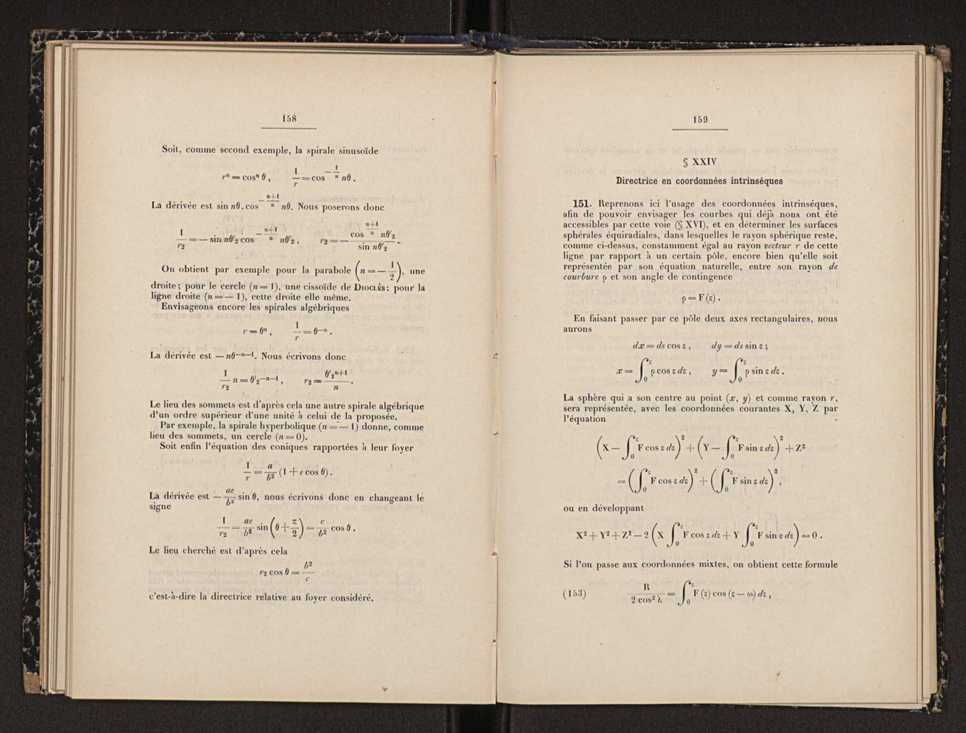 158
Soit, comme second exemple, la spirale sinusoïde
rⁿ = cosⁿ θ , 1/r = cos^(−1/n) nθ .
La dérivée est sin nθ. cos^(−(n+1)/n) nθ. Nous poserons donc
1/r₂ = — sin nθ'₂ cos^(−(n+1)/n) nθ'₂ , r₂ = — cos^((n+1)/n) nθ'₂ / sin nθ'₂ .
On obtient par exemple pour la parabole (n = — 1/2), une
droite; pour le cercle (n = 1), une cissoïde de Dioclès; pour la
ligne droite (n = — 1), cette droite elle même.
Envisageons encore les spirales algébriques
r = θⁿ , 1/r = θ⁻ⁿ .
La dérivée est — nθ⁻ⁿ⁻¹. Nous écrivons donc
1/r₂ = n = θ'₂⁻ⁿ⁻¹ , r₂ = θ'₂ⁿ⁺¹ / n .
Le lieu des sommets est d'après cela une autre spirale algébrique
d'un ordre supérieur d'une unité à celui de la proposée.
Par exemple, la spirale hyperbolique (n = — 1) donne, comme
lieu des sommets, un cercle (n = 0).
Soit enfin l'équation des coniques rapportées à leur foyer
1/r = a/b² (1 + e cos θ) .
La dérivée est — ae/b² sin θ, nous écrivons donc en changeant le
signe
1/r₂ = ae/b² sin (θ + π/2) = c/b² cos θ .
Le lieu cherché est d'après cela
r₂ cos θ = b²/c
c'est-à-dire la directrice relative au foyer considéré.
159
§ XXIV
Directrice en coordonnées intrinsèques
151. Reprenons ici l'usage des coordonnées intrinsèques,
afin de pouvoir envisager les courbes qui déjà nous ont été
accessibles par cette voie (§ XVI), et en déterminer les surfaces
sphérales équiradiales, dans lesquelles le rayon sphérique reste,
comme ci-dessus, constamment égal au rayon vecteur r de cette
ligne par rapport à un certain pôle, encore bien qu'elle soit
représentée par son équation naturelle, entre son rayon de
courbure ρ et son angle de contingence
ρ = F (ε) .
En faisant passer par ce pôle deux axes rectangulaires, nous
aurons
dx = ds cos ε , dy = ds sin ε ;
x = ∫₀^ε ρ cos ε dε , y = ∫₀^ε ρ sin ε dε .
La sphère qui a son centre au point (x, y) et comme rayon r,
sera représentée, avec les coordonnées courantes X, Y, Z par
l'équation
(X — ∫₀^ε F cos ε dε)² + (Y — ∫₀^ε F sin ε dε)² + Z²
= (∫₀^ε F cos ε dε)² + (∫₀^ε F sin ε dε)² ,
ou en développant
X² + Y² + Z² — 2 (X ∫₀^ε F cos ε dε + Y ∫₀^ε F sin ε dε) = 0 .
Si l'on passe aux coordonnées mixtes, on obtient cette formule
(153) R / 2 cos² λ = ∫₀^ε F (ε) cos (ε — ω) dε ,